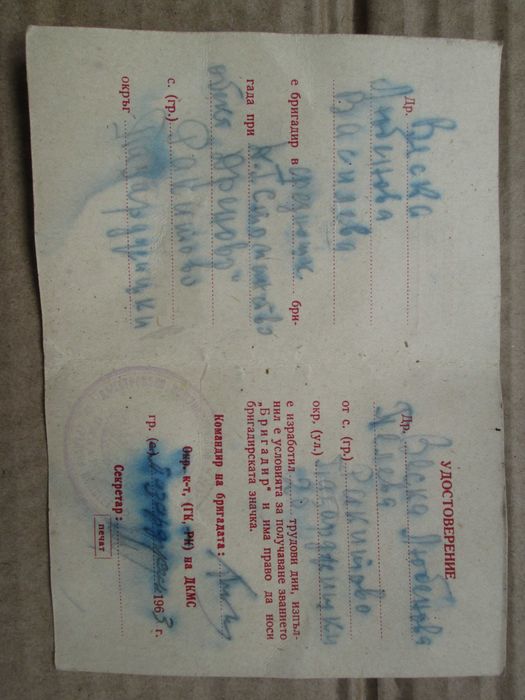 Др. Веска
Любенова
Василева
е бригадир в средношк. бри-
гада при
с. (гр.) Ракитово
окръг Пазарджишки
УДОСТОВЕРЕНИЕ
Др. Веска Любенова
от с. (гр.) Ракитово
окр. (ул.) Пазарджишки
е изработил трудови дни, изпъл-
нил е условията за получаване званието
„Бригадир“ и има право да носи
бригадирската значка.
Командир на бригадата:
Окр. к-т, (ГК, РК) на ДКМС
гр. (с.) 1963 г.
Секретар:
печат